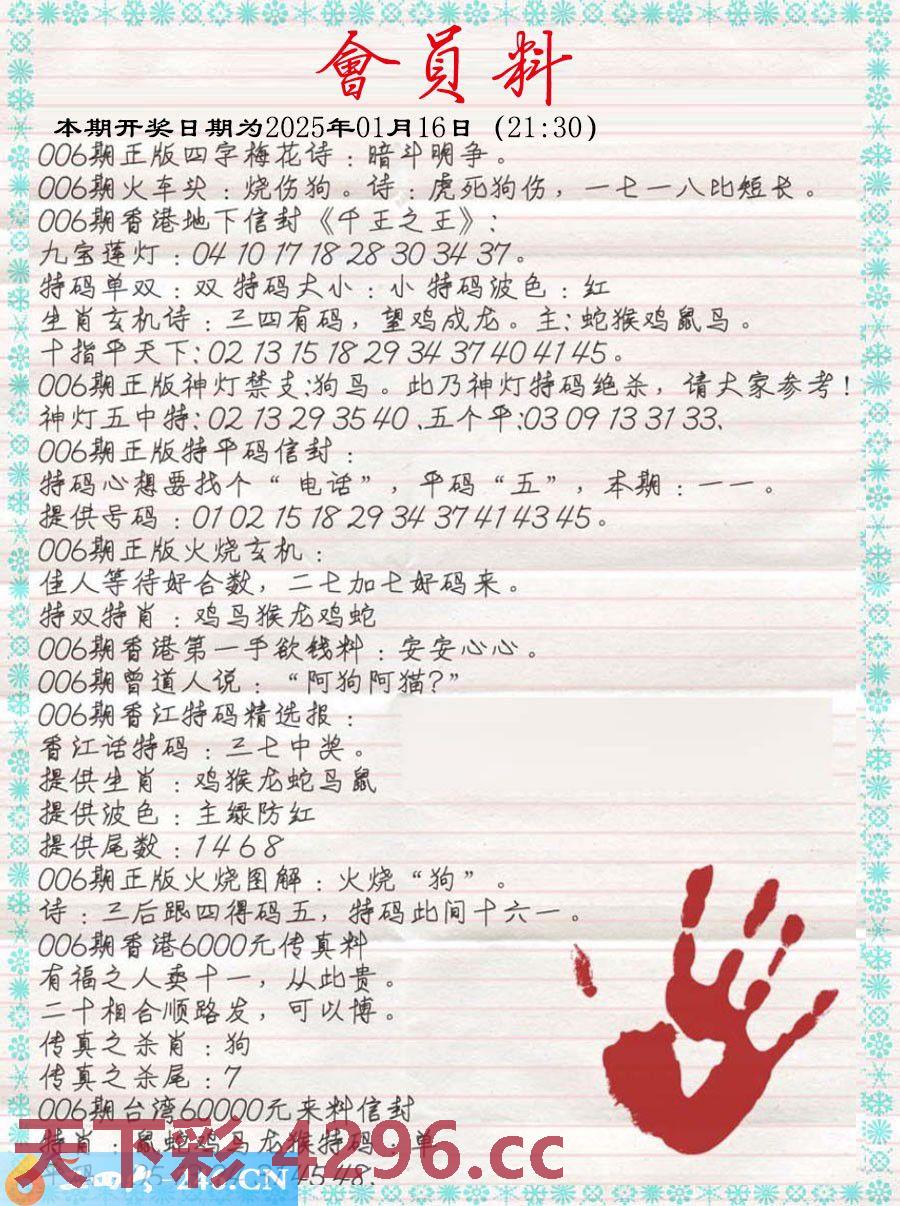 會員料
本期开奖日期为2025年01月16日 (21:30)
006期正版四字梅花诗：暗斗明争。
006期火车头：烧伤狗。诗：虎死狗伤，一七一八比短长。
006期香港地下信封《千王之王》：
九宝莲灯：04 10 17 18 28 30 34 37。
特码单双：双 特码大小：小 特码波色：红
生肖玄机诗：三四有码，望鸡成龙。主：蛇猴鸡鼠马。
十指平天下：02 13 15 18 29 34 37 40 41 45。
006期正版神灯禁支：狗马。此乃神灯特码绝杀，请大家参考！
神灯五中特：02 13 29 35 40、五个平：03 09 13 31 33、
006期正版特平码信封：
特码心想要找个“电话”，平码“五”，本期：一一。
提供号码：01 02 15 18 29 34 37 41 43 45。
006期正版火烧玄机：
佳人等待好合数，二七加七好码来。
特双特肖：鸡马猴龙鸡蛇
006期香港第一手欲钱料：安安心心。
006期曾道人说：“阿狗阿猫?”
006期香江特码精选报：
香江话特码：三七中奖。
提供生肖：鸡猴龙蛇马鼠
提供波色：主绿防红
提供尾数：1 4 6 8
006期正版火烧图解：火烧“狗”。
诗：三后跟四得码五，特码此间十六一。
006期香港6000元传真料
有福之人卖十一，从此贵。
二十相合顺路发，可以博。
传真之杀肖：狗
传真之杀尾：7
006期台湾60000元来料信封
特肖：鼠蛇鸡马龙猴特码：单
天下彩 4296.cc
45 48.
246.CN